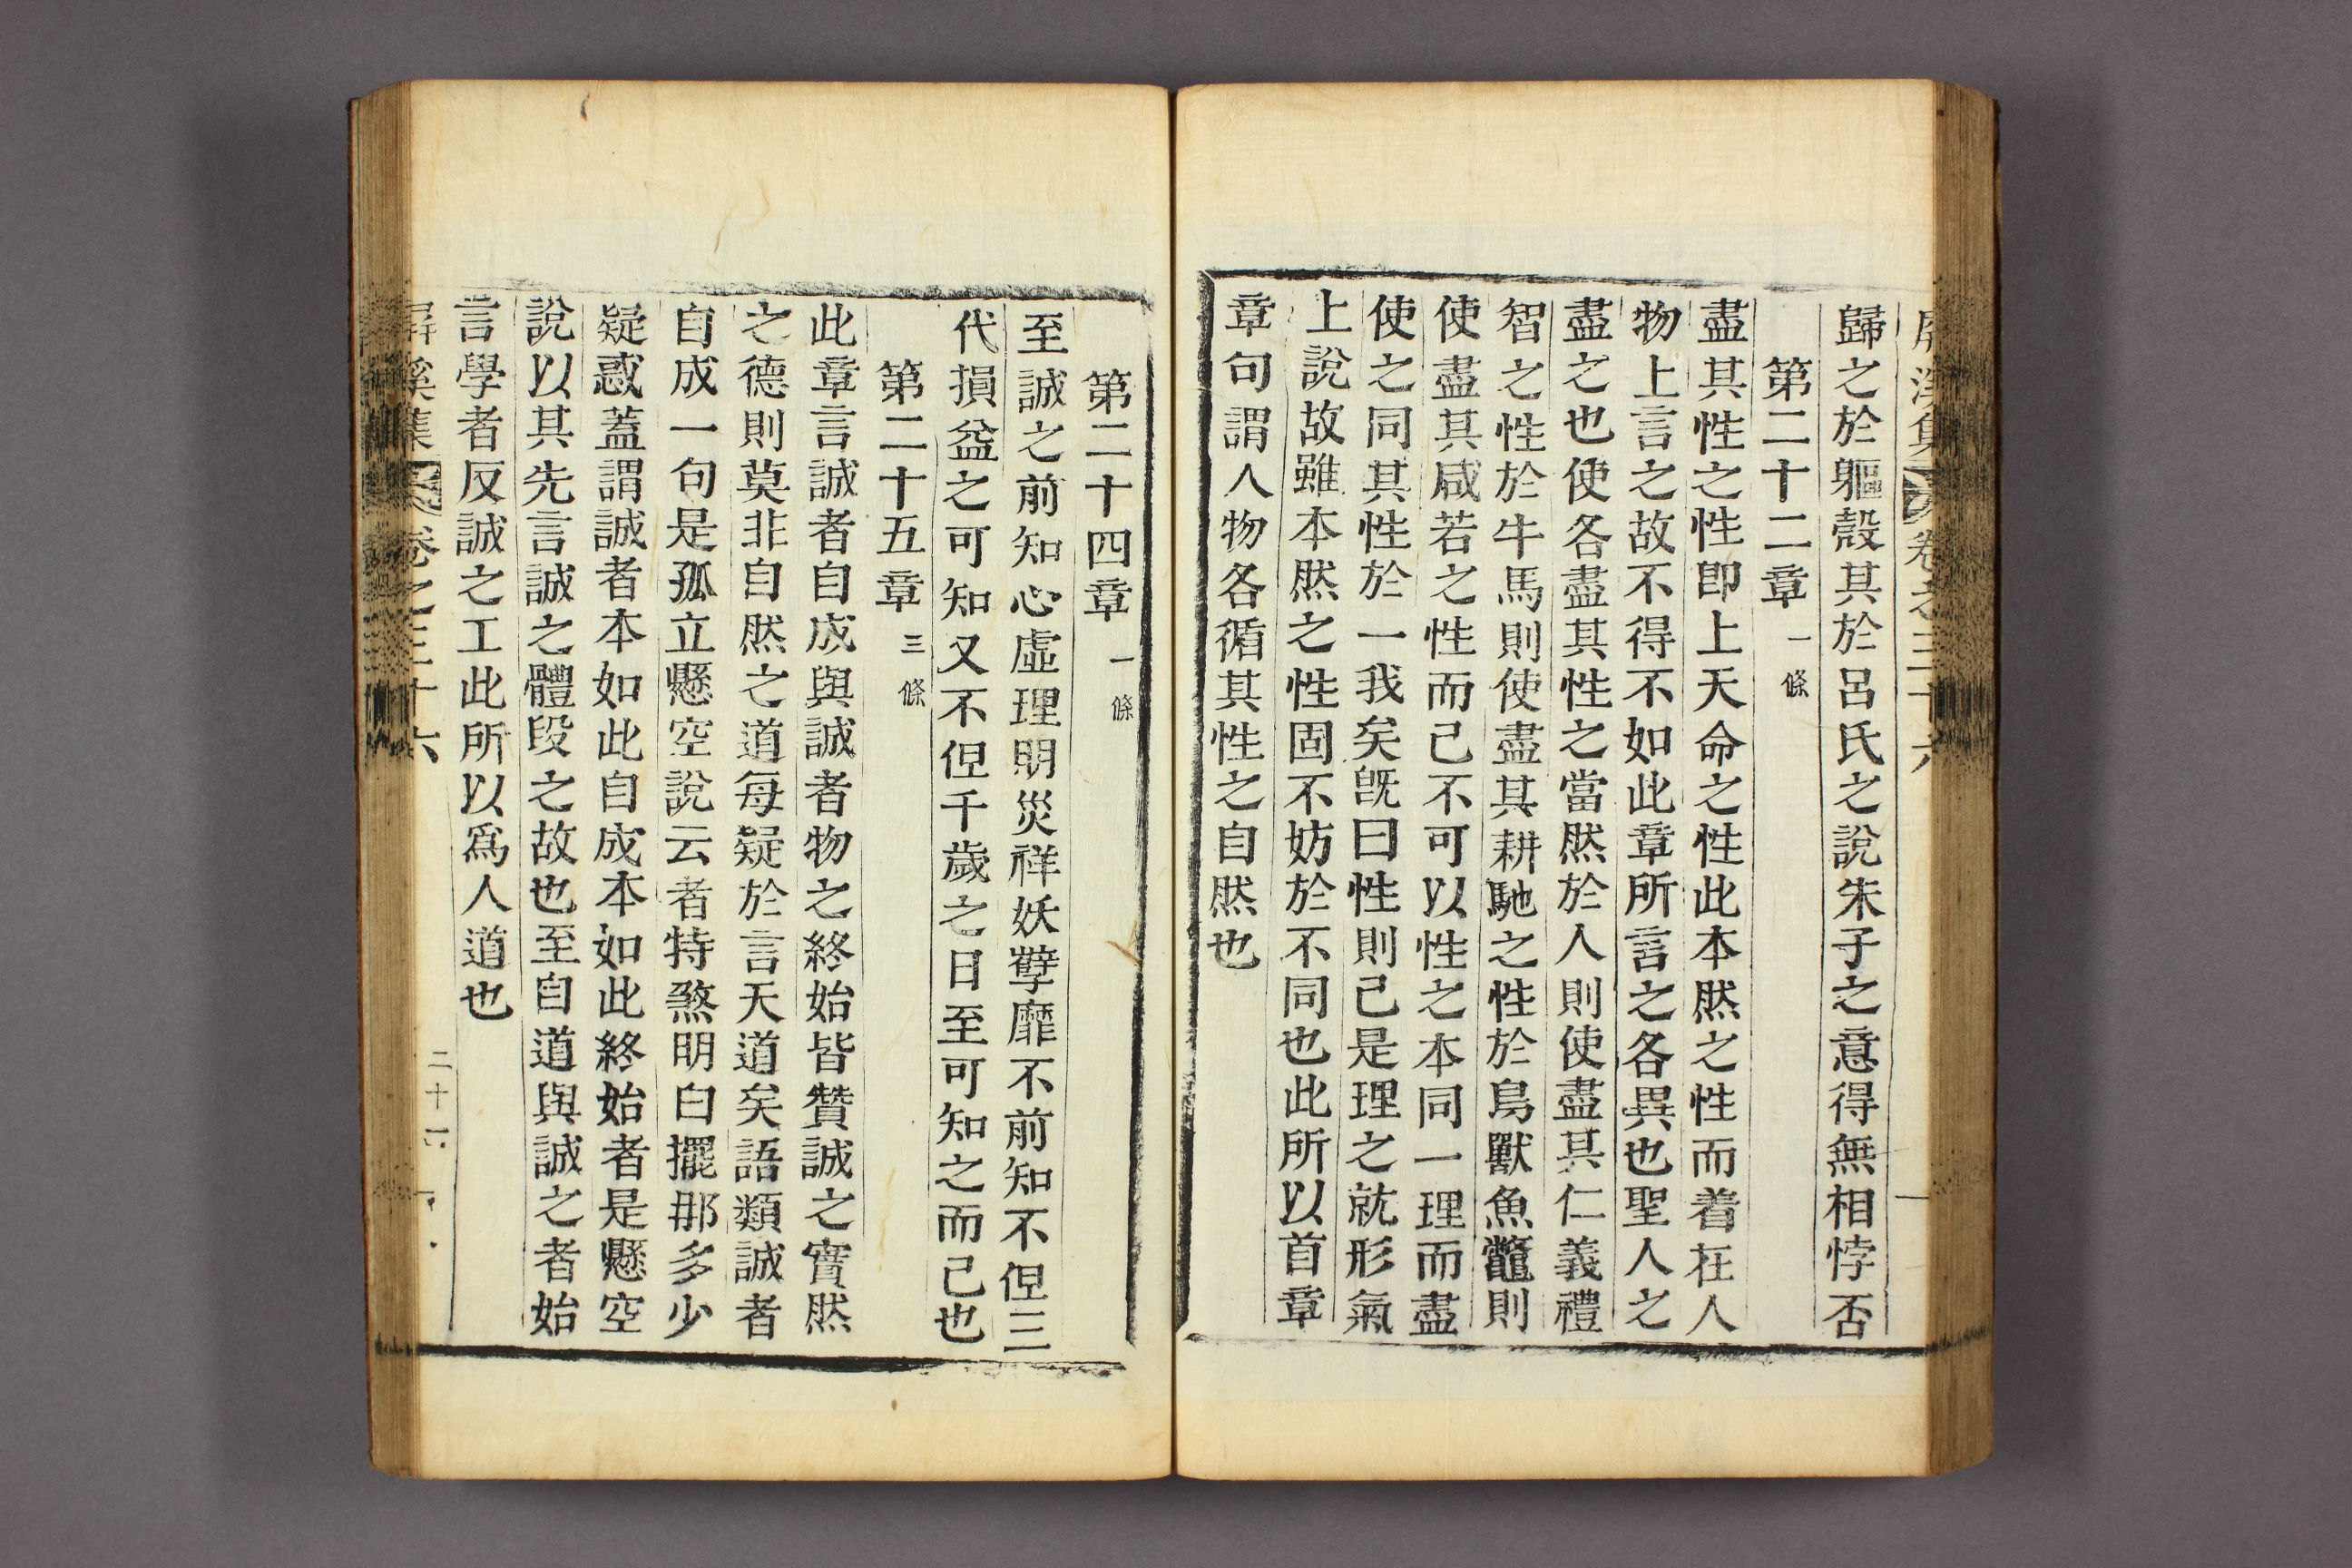 屛溪集 卷之三十六
歸之於軀殼其於呂氏之說朱子之意得無相悖否
第二十二章 一條
盡其性之性卽上天命之性此本然之性而着在人
物上言之故不得不如此章所言之各異也聖人之
盡之也使各盡其性之當然於人則使盡其仁義禮
智之性於牛馬則使盡其耕馳之性於鳥獸魚鼈則
使盡其咸若之性而已不可以性之本同一理而盡
使之同其性於一我矣旣曰性則已是理之就形氣
上說故雖本然之性固不妨於不同也此所以首章
章句謂人物各循其性之自然也
第二十四章 一條
至誠之前知心虛理明災祥妖孼靡不前知不但三
代損益之可知又不但千歲之日至可知之而已也
第二十五章 三條
此章言誠者自成與誠者物之終始皆贊誠之實然
之德則莫非自然之道每疑於言天道矣語類誠者
自成一句是孤立懸空說云者特煞明白擺那多少
疑惑蓋謂誠者本如此自成本如此終始者是懸空
說以其先言誠之體段之故也至自道與誠之者始
言學者反誠之工此所以爲人道也
屛溪集 卷之三十六